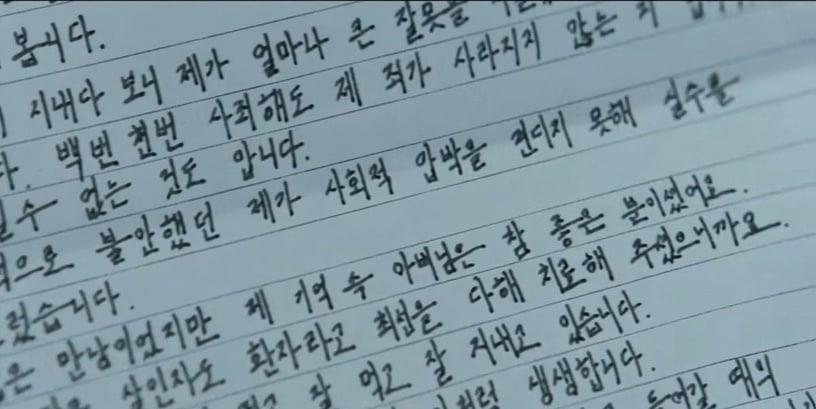 봅니다.
지내다 보니 제가 얼마나 큰 잘못을
백번 천번 사죄해도 제 죄가 사라지지 않는 걸
수 없는 것도 압니다.
적으로 불안했던 제가 사회적 압박을 견디지 못해 실수를
렀습니다.
은 만남이었지만 제 기억 속 아버님은 참 좋은 분이셨어요.
살인자도 환자라고 최선을 다해 치료해 주셨으니까요.
잘 먹고 잘 지내고 있습니다.
처럼 생생합니다.
들어갈 때의